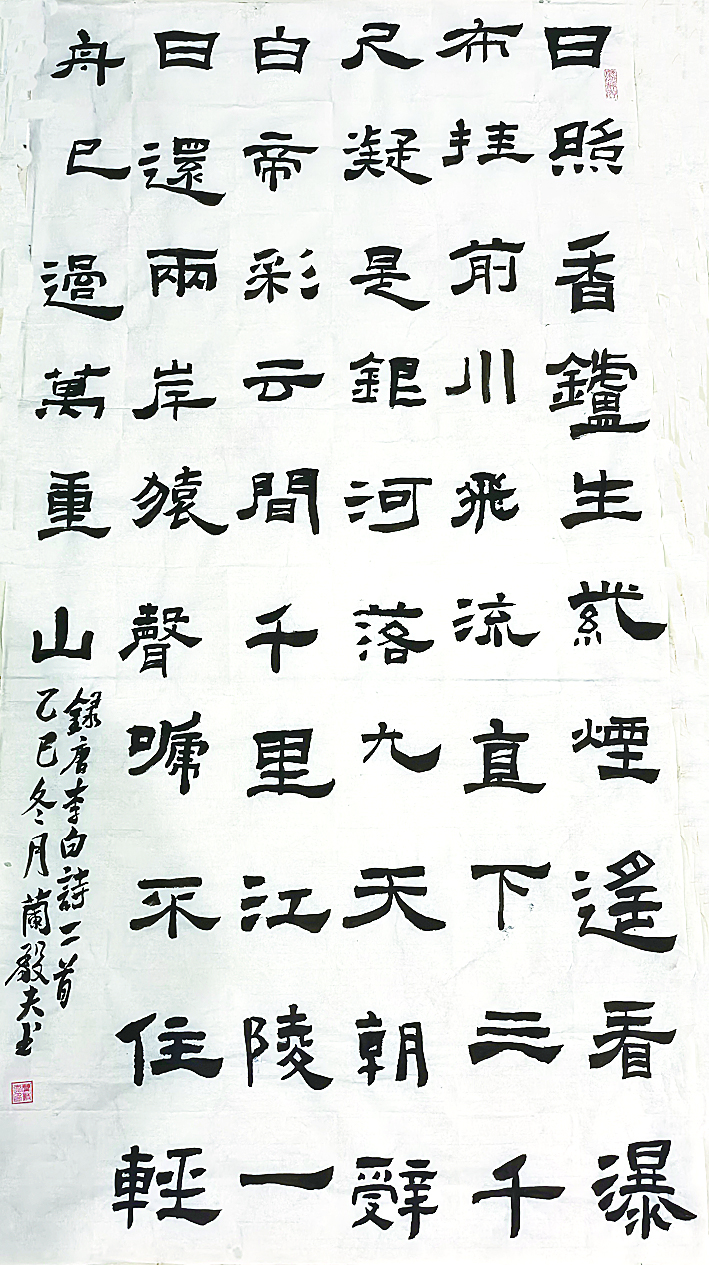 日照香鑪生紫煙遙看瀑
布挂前川飛流直下三千
尺凝是銀河落九天朝辭
白帝彩云間千里江陵一
日還兩岸猿聲嗁不住輕
舟已過萬重山
錄唐李白詩二首
乙巳冬月蘭毅夫书